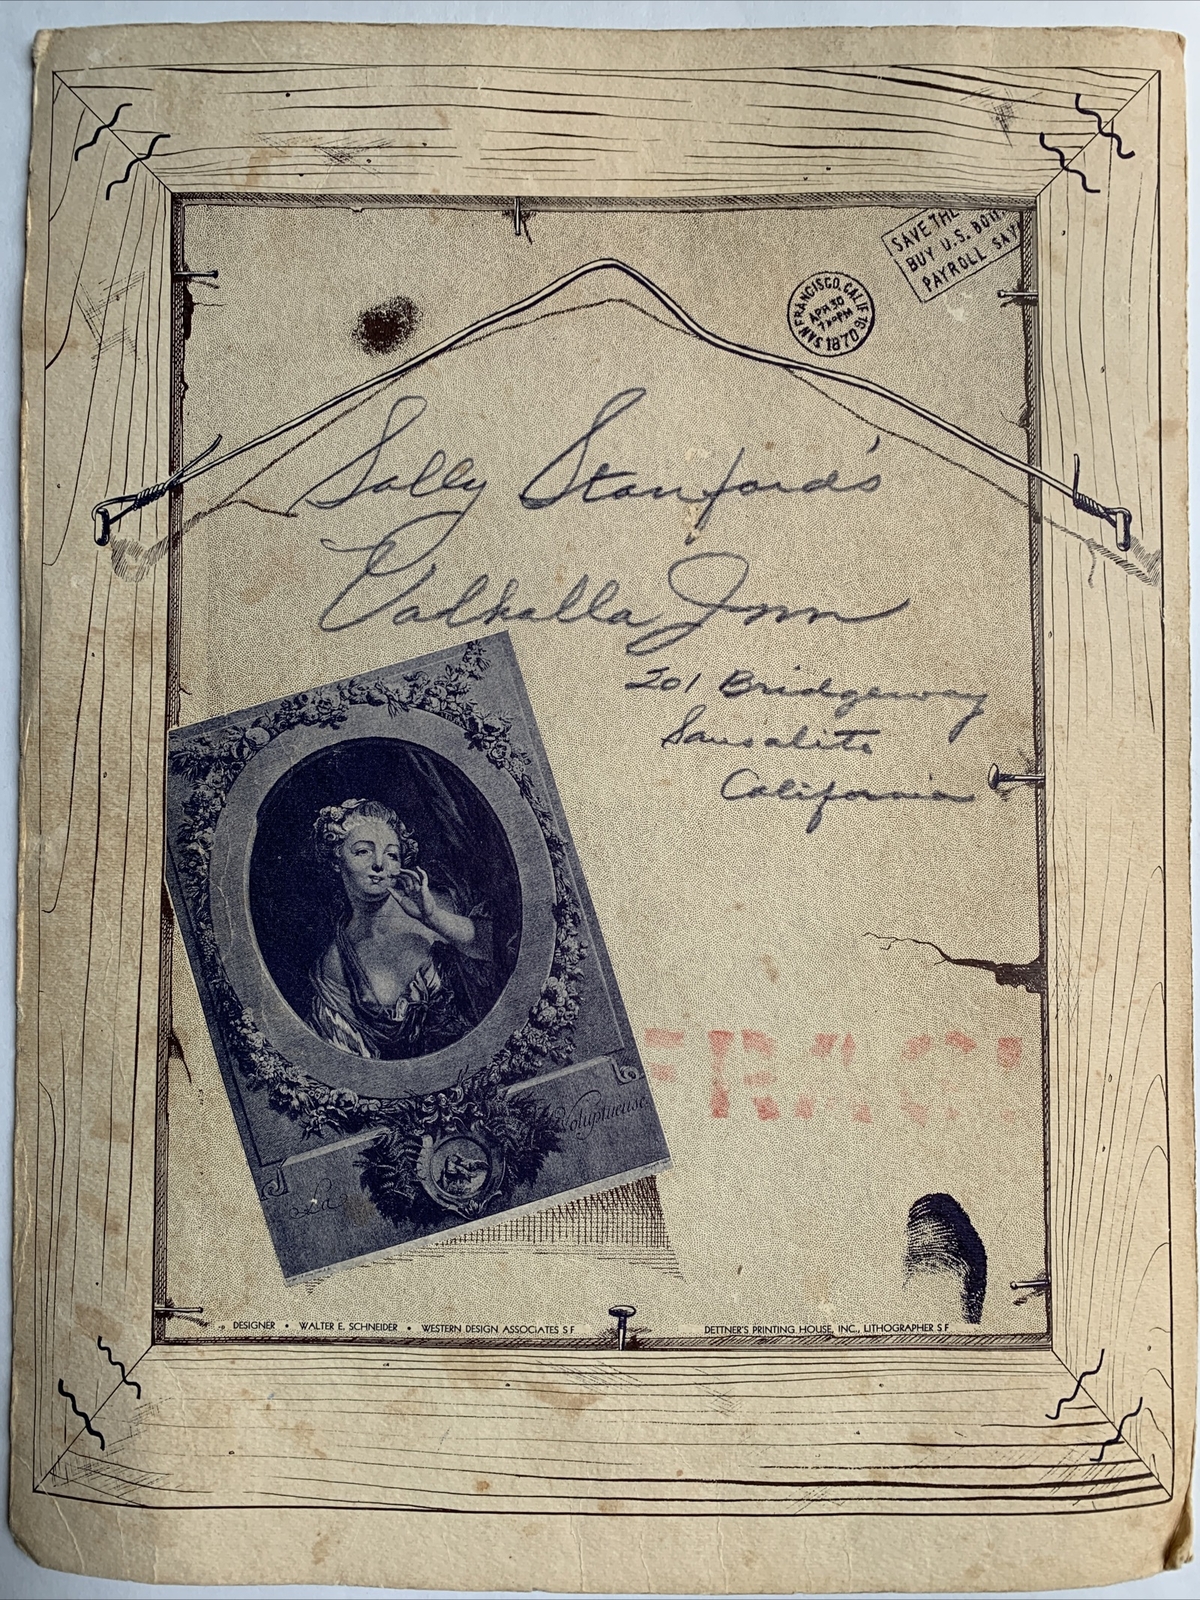 SAVE THE
BUY U.S.
PAYROLL
SAN FRANCISCO, CALIF. 16
APR 30
7 30 PM
1870
Sally Stanford's
Valhalla Inn
201 Bridgeway
Sausalito
California
La Voluptueuse
DESIGNER • WALTER E. SCHNEIDER • WESTERN DESIGN ASSOCIATES S F
DETTNER'S PRINTING HOUSE, INC., LITHOGRAPHER S F